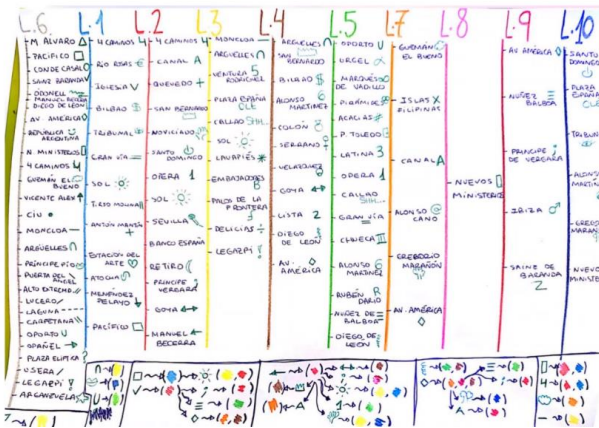 L.6.
M. ALVARO
PACIFICO
CONDE CASAL
SAINZ BARANDA
ODONELL
MANUEL BECERRA
DIEGO DE LEÓN
AV. AMÉRICA
REPÚBLICA
ARGENTINA
N. MINISTERIOS
4 CAMINOS 4
GUZMÁN EL
BUENO
VICENTE ALEX
CIU
MONCLOA
ARGÜELLES
PRÍNCIPE PÍO
PUERTA DEL
ÁNGEL
ALTO EXTREM.
LUCERO
LAGUNA
CARPETANA
OPORTO U
OPAÑEL
PLAZA ELIPTICA
USERA
LEGAZPI
ARGANZUELA
L.1
4 CAMINOS 4
RIO ROSAS
IGLESIA
BILBAO
TRIBUNAL
GRAN VÍA
SOL
TIRSO MOLINA
ANTÓN MARTÍN
ESTACIÓN DEL
ARTE
ATOCHA
MENÉNDEZ
PELAYO
PACÍFICO
L.2
4 CAMINOS 4
CANAL A
QUEVEDO
SAN BERNARDO
NOVICIADO
SANTO
DOMINGO
OPERA 1
SOL
SEVILLA
BANCO ESPAÑA
RETIRO
PRINCIPE
VERGARA
GOYA
MANUEL
BECERRA
L.3
MONCLOA
ARGUELLES
VENTURA 5
RODRIGUEZ
PLAZA ESPAÑA
OLE
CALLAO SHH...
SOL
LAVAPIÉS
EMBAJADORES
PALOS DE LA
FRONTERA
DELICIAS
LEGAZPI
L.4
ARGÜELLES
SAN
BERNARDO
BILBAO
ALONSO
MARTINEZ
COLÓN
SERRANO
VELAZQUEZ
GOYA
LISTA 2
DIEGO
DE LEON
AV.
AMÉRICA
L.5
OPORTO U
URGEL
MARQUÉS
DE VADILLO
PIRÁMIDE
ACACIAS #
P. TOLEDO
LATINA 3
OPERA 1
CALLAO
SHH...
GRAN VÍA
CHUECA
ALONSO
MARTINEZ
RUBÉN
DARIO
NUÑEZ DE
BALBOA
DIEGO DE
LEON
L.7
GUZMÁN
EL BUENO
ISLAS X
FILIPINAS
CANAL A
ALONSO @
CANO
GREGORIO
MARAÑÓN
AV. AMÉRICA
L.8
NUEVOS
MINISTERIOS
L.9
AV. AMÉRICA
NUÑEZ
BALBOA
PRINCIPE
DE VERGARA
IBIZA
SAINZ DE
BARANDA
L.10
SANTO
DOMINGO
PLAZA
ESPAÑA
OLE
TRIBUN
ALONSO
MARTIN
GREGO
MARAÑ
NUEVO
MINISTE